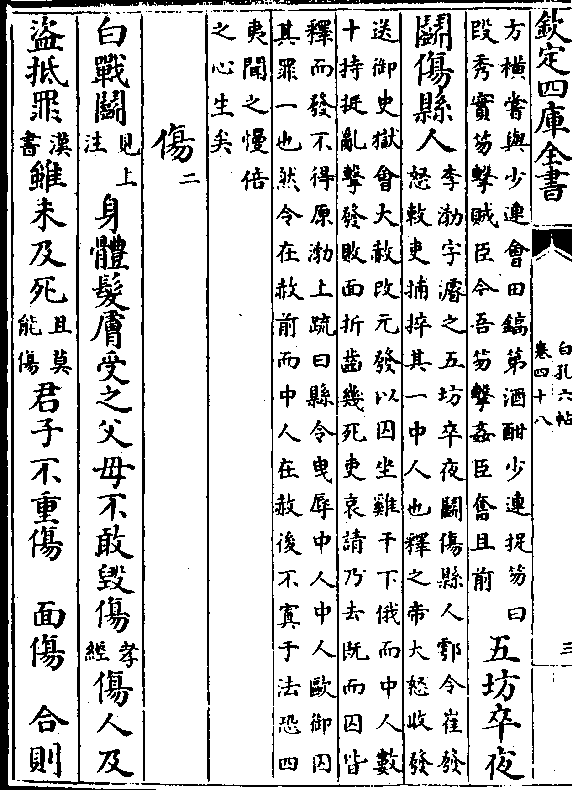 欽定四庫全書
白孔六帖
卷四十八
三
方橫嘗與少連會田鎬第酒酣少連挺笏曰
段秀實笏擊賊臣今吾笏擊姦臣奮且前
五坊卒夜
鬭傷縣人
李渤字濬之五坊卒夜鬭傷縣人鄠令崔發
怒敕吏捕捽其一中人也釋之帝大怒收發
送御史獄會大赦改元發以囚坐雞干下俄而中人數
十持挺亂擊發敗面折齒幾死吏哀請乃去既而囚皆
釋而發不得原渤上疏曰縣令曳辱中人中人毆御囚
其罪一也然令在赦前而中人在赦後不寘于法恐四
夷聞之慢倍
之心生矣
傷二
白戰鬭
見上
注
身體髮膚受之父母不敢毀傷
孝
經
傷人及
盜抵罪
漢
書
雖未及死
且莫
能傷
君子不重傷 面傷 合則